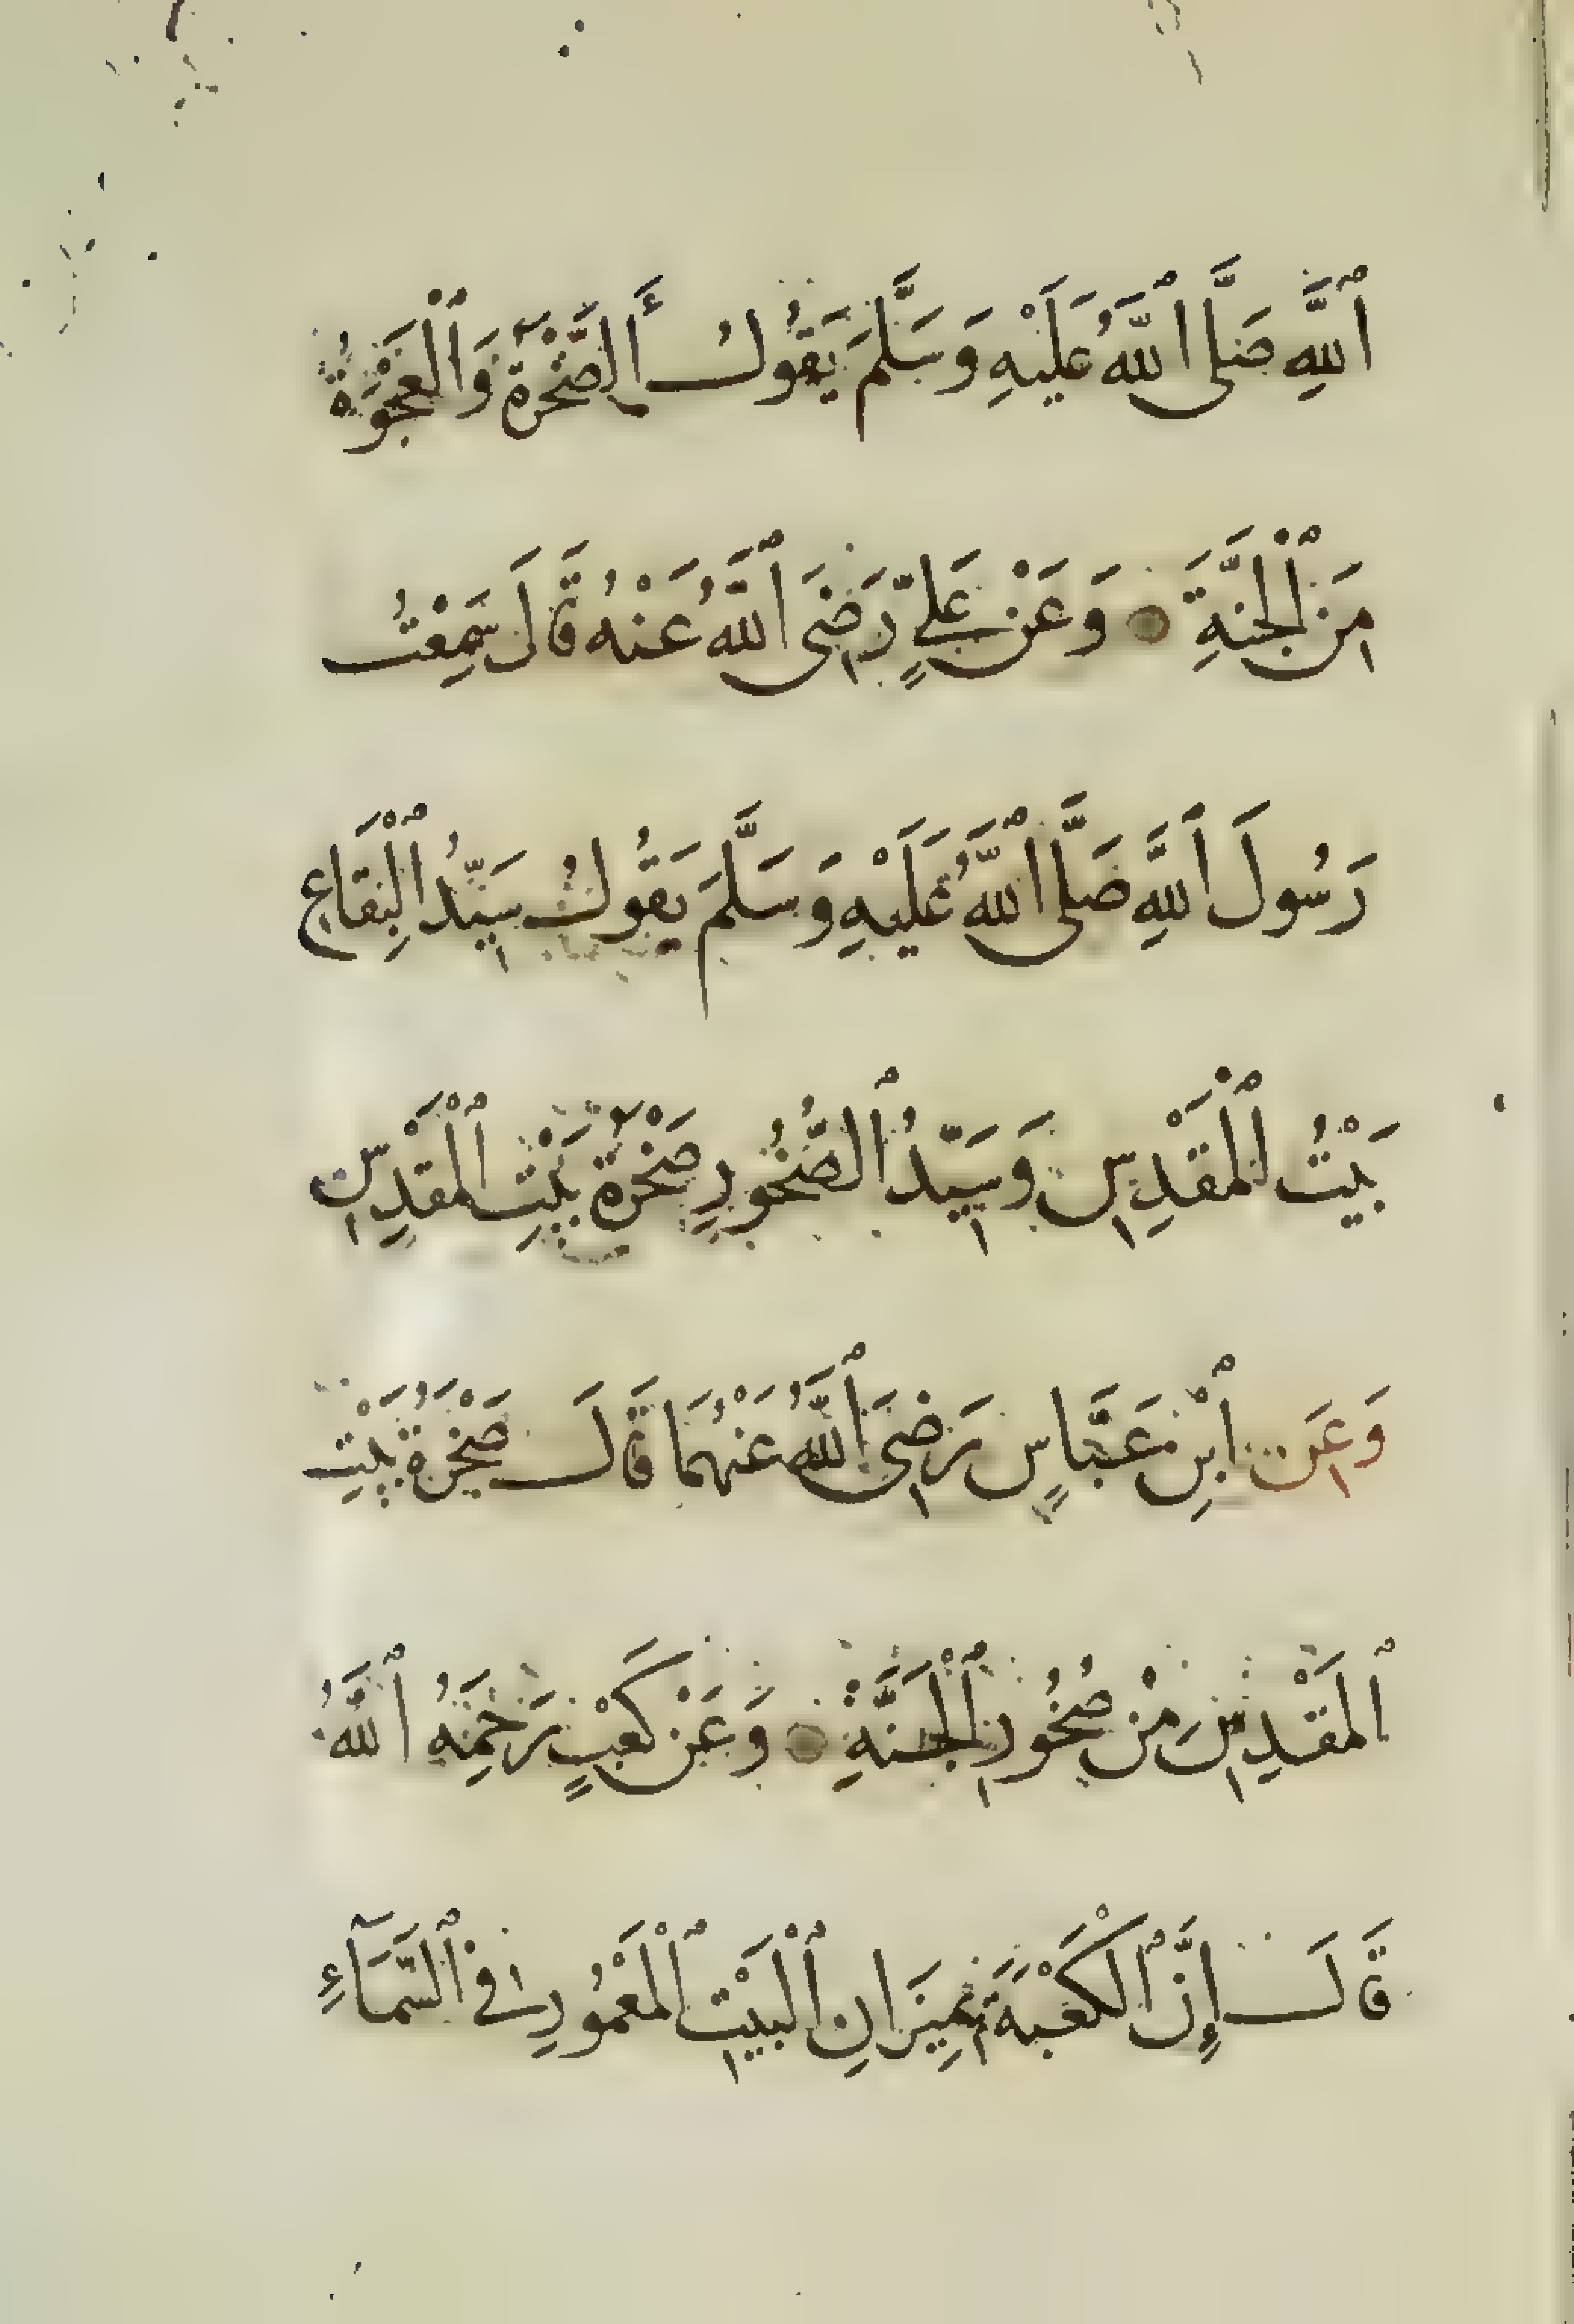 ٱللَّهِ صَلَّى ٱللَّهُ عَلَيْهِ وَسَلَّمَ يَقُولُ أَلصَّخْرَةُ وَٱلْعَجْوَةُ
مِنَ ٱلْجَنَّةِ وَعَنْ عَلِيٍّ رَضِيَ ٱللَّهُ عَنْهُ قَالَ سَمِعْتُ
رَسُولَ ٱللَّهِ صَلَّى ٱللَّهُ عَلَيْهِ وَسَلَّمَ يَقُولُ سَيِّدُ ٱلْبِقَاعِ
بَيْتُ ٱلْمَقْدِسِ وَسَيِّدُ ٱلصُّخُورِ صَخْرَةُ بَيْتِ ٱلْمَقْدِسِ
وَعَنِ ٱبْنِ عَبَّاسٍ رَضِيَ ٱللَّهُ عَنْهُمَا قَالَ صَخْرَةُ بَيْتِ
ٱلْمَقْدِسِ مِنْ صُخُورِ ٱلْجَنَّةِ وَعَنْ كَعْبٍ رَحِمَهُ ٱللَّهُ
قَالَ إِنَّ ٱلْكَعْبَةَ بِمِيزَانِ ٱلْبَيْتِ ٱلْمَعْمُورِ فِي ٱلسَّمَآءِ